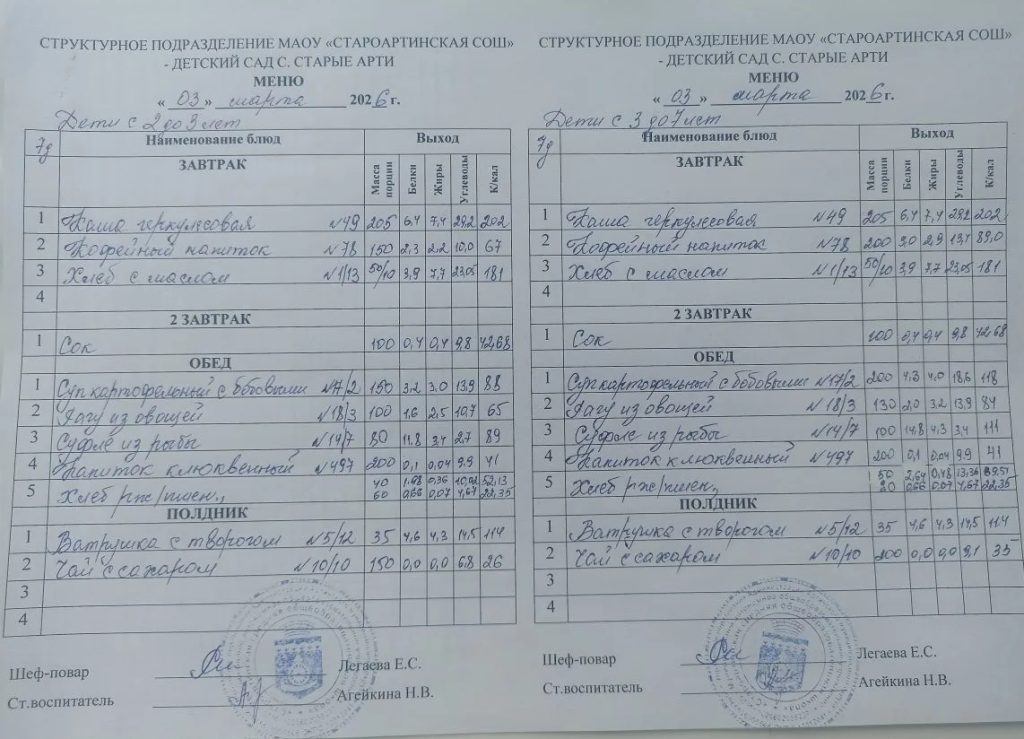 СТРУКТУРНОЕ ПОДРАЗДЕЛЕНИЕ МАОУ «СТАРОАРТИНСКАЯ СОШ»
- ДЕТСКИЙ САД С. СТАРЫЕ АРТИ
МЕНЮ
« 03 » марта 2026 г.
Дети с 2 до 3 лет
7д Наименование блюд Выход
ЗАВТРАК Масса порции Белки Жиры Углеводы К/кал
1 Каша геркулесовая №49 205 6,4 7,4 29,2 202
2 Кофейный напиток №78 150 2,3 2,2 10,0 67
3 Хлеб с маслом №1/13 50/10 3,9 7,7 23,05 181
4
2 ЗАВТРАК
1 Сок 100 0,4 0,4 9,8 42,68
ОБЕД
1 Суп картофельный с бобовыми 150 3.2 3.0 13,9 88
2 Рагу из овощей №18/3 100 1,6 2,5 10,7 65
3 Суфле из рыбы №14/7 80 11,8 3,4 2,7 89
4 Напиток клюквенный №497 200 0,1 0,04 9.9 41
5 Хлеб рж/пшен., 40 0,36 52,13
60 0,66 0,07 4,67 22,35
ПОЛДНИК
1 Ватрушка с творогом №5/12 35 4,6 4,3 14,5 114
2 Чай с сахаром №10/10 150 0,0 0,0 6.8 26
3
4
Шеф-повар Легаева Е.С.
Ст.воспитатель Агейкина Н.В.
СТРУКТУРНОЕ ПОДРАЗДЕЛЕНИЕ МАОУ «СТАРОАРТИНСКАЯ СОШ»
- ДЕТСКИЙ САД С. СТАРЫЕ АРТИ
МЕНЮ
« 03 » марта 2026 г.
Дети с 3 до 7 лет
7д Наименование блюд Выход
ЗАВТРАК Масса порции Белки Жиры Углеводы К/кал
1 Каша геркулесовая №49 205 6,4 7,4 29,2 202
2 Кофейный напиток №78 200 3,0 2,9 13,4 89,0
3 Хлеб с маслом №1/13 50/10 3,9 7,7 23,05 181
4
2 ЗАВТРАК
1 Сок 100 0,4 0,4 9,8 42,68
ОБЕД
1 Суп картофельный с бобовыми №17/2 200 4,3 4,0 18,6 118
2 Рагу из овощей №18/3 130 2,0 3,2 13,9 84
3 Суфле из рыбы №14/7 100 14,8 4,3 3,4 111
4 Напиток клюквенный №497 200 0,1 0,04 9.9 41
5 Хлеб рж/пшен., 50 2,64 0,48 13,36
20 0,66 0,07 4,67 22,35
ПОЛДНИК
1 Ватрушка с творогом №5/12 35 4,6 4,3 14,5 114
2 Чай с сахаром №10/10 200 0,0 0,0 9,1 35
3
4
Шеф-повар Легаева Е.С.
Ст.воспитатель Агейкина Н.В.